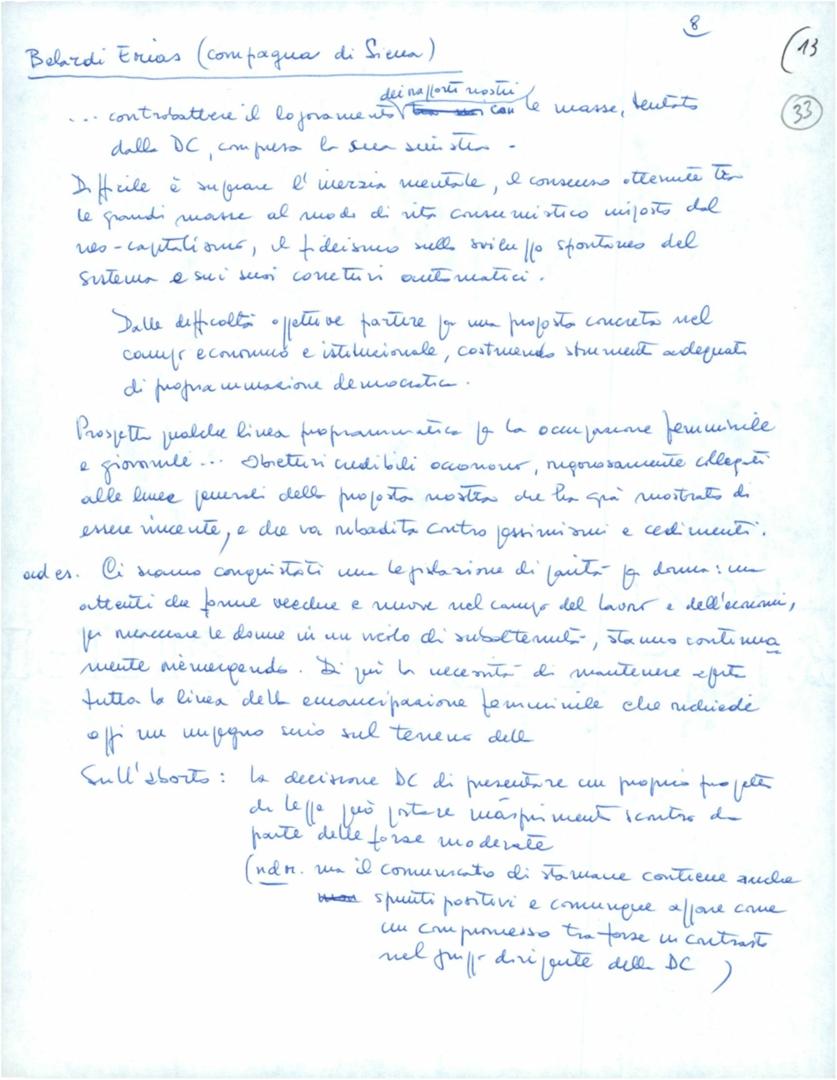 8
(13
33
Belardi Erias (compagna di Siena)
... controbattere il logoramento dei rapporti nostri con le masse, tentato
dalla DC, compresa la sua sinistra.
Difficile è superare l'inerzia mentale, il consenso ottenuto tra
le grandi masse al modo di vita consumistico imposto dal
neo-capitalismo, il fideismo sullo sviluppo spontaneo del
sistema e sui suoi correttivi automatici.
Dalle difficoltà oggettive partire per una proposta concreta nel
campo economico e istituzionale, costruendo strumenti adeguati
di programmazione democratica.
Prospetta qualche linea programmatica per la occupazione femminile
e giovanile... Obiettivi credibili occorrono, rigorosamente collegati
alle linee generali della proposta nostra che ha già mostrato di
essere vincente, e che va ribadita contro pessimismi e cedimenti.
ad es. Ci siamo conquistati una legislazione di parità per donna: ma
attenti che forme vecchie e nuove nel campo del lavoro e dell'economia,
per ricacciare le donne in un ruolo di subalternità, stanno continua
mente riemergendo. Di qui la necessità di mantenere aperta
tutta la linea della emancipazione femminile che richiede
oggi un impegno serio sul terreno delle
Sull'aborto: la decisione DC di presentare un proprio progetto
di legge può portare inasprimenti scontro da
parte delle forze moderate
(ndr. ma il comunicato di stamane contiene anche
spunti positivi e comunque appare come
un compromesso tra forze in contrasto
nel gruppo dirigente della DC)